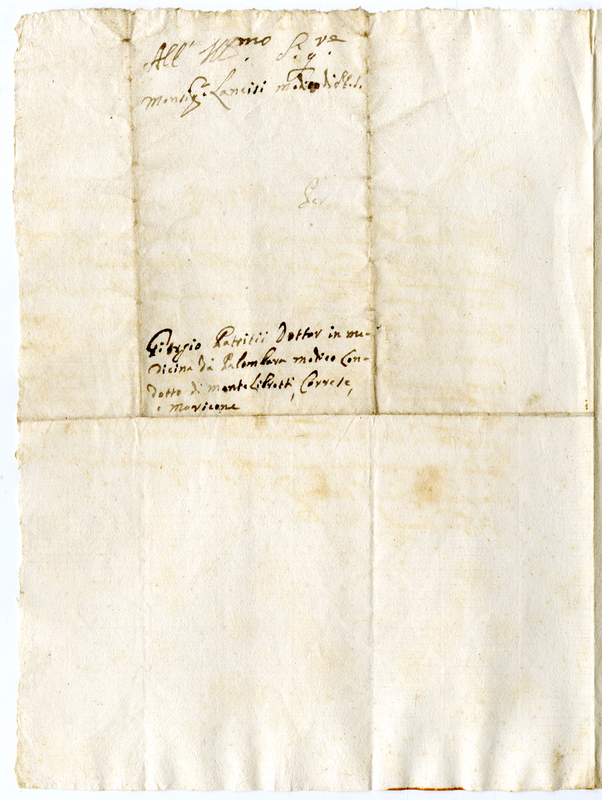 All' Ill.mo Sig.re
Monsig.r Lancisi Medico di
Per
Giorgio Patritii Dottor in me-
dicina da Palombara medico Con-
dotto di Monte Libretti, Correse,
e Moricone